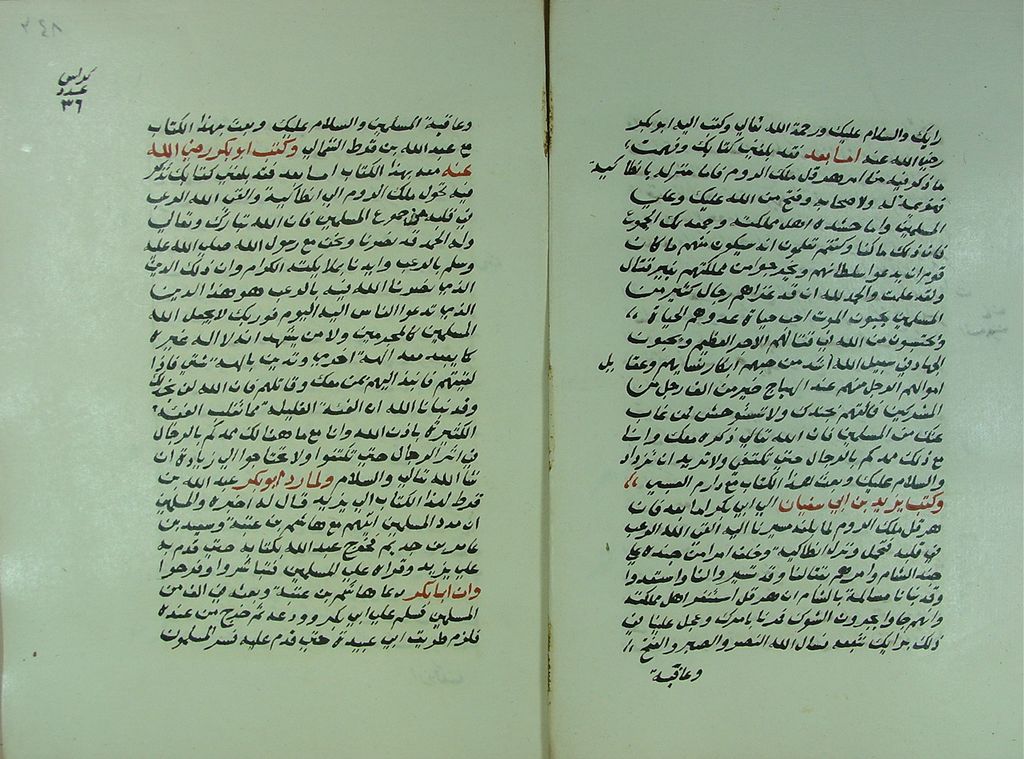 رايك والسلام عليك ورحمة الله تعالى وكتب اليه ابو بكر
رضي الله عنه اما بعد فقد بلغني كتابك وفهمت
ما ذكرت فيه من امر هرقل ملك الروم فاما منزله بانطاكية
فهزيمة له ولاصحابه وفتح من الله عليك وعلى
المسلمين واما حشده اهل مملكته وجمعه لك الجموع
فان ذلك ما كنا وكنتم تعلمون انه سيكون منهم ما كان
قوم ان يدعوا سلطانهم ويخرجوا من مملكتهم بغير قتال
ولقد علمت والحمد لله ان قد غزاهم رجال كثير من
المسلمين يحبون الموت احب حياة عدوهم الحياة
ويحتسبون من الله في قتالهم الاجر العظيم ويحبون
الجهاد في سبيل الله اشد من حبهم ابكار نسايهم وعقايل
اموالهم الرجل منهم عند الهياج خير من الف رجل من
المشركين فالقهم بجندك ولا تستوحش لمن غاب
عنك من المسلمين فان الله تعالى ذكره معك وانا
مع ذلك ممدكم بالرجال حتى تكتفي ولا تريد ان تزداد
والسلام عليك وبعث هذا الكتاب مع دارم العبسي
وكتب يزيد بن ابي سفيان الى ابي بكر اما بعد فان
هرقل ملك الروم لما بلغه مسيرنا اليه القى الله الرعب
في قلبه فتحمل ونزل انطاكية وخلف امرا من جنده على
جند الشام وامرهم بقتالنا وقد تيسروا لنا واستعدوا
وقد نبانا مسالمة الشام ان هرقل استنفر اهل مملكته
وانهم جاوا يجرون الشوك فمرنا بامرك وعجل علينا في
ذلك برايك نتبعه نسال الله النصر والصبر والفتح
وعاقبة
٢٤٨
كراس
عدد
٣٦
وعاقبة المسلمين والسلام عليك وبعث بهذا الكتاب
مع عبد الله بن قرط الثمالي وكتب ابو بكر رضي الله
عنه معه بهذا الكتاب اما بعد فقد بلغني كتابك تذكر
فيه تحول ملك الروم الى انطاكية والقى الله الرعب
في قلبه من جموع المسلمين فان الله تبارك وتعالى
وله الحمد قد نصرنا ونحن مع رسول الله صلى الله عليه
وسلم بالرعب وايدنا بملايكته الكرام وان ذلك الدين
الذي نصرنا الله فيه بالرعب هو هذا الدين
الذي ندعوا الناس اليه اليوم فوربك لا يجعل الله
المسلمين كالمجرمين ولا من يشهد انه لا اله غيره
كما يعبد معه الهة اخرى وتدين بالهة شتى فاذا
لقيتهم فانبذ اليهم بمن معك وقاتلهم فان الله لن يخذلك
وقد نبانا الله ان الفئة القليلة مما تغلب الفئة
الكثيرة باذن الله وانا مع ما هنالك ممدكم بالرجال
في اثر الرجال حتى تكتفوا ولا تحتاجوا الى زيادة ان
شا الله تعالى والسلام ولما رد ابو بكر عبد الله بن
قرط لهذا الكتاب الى يزيد قال له اخبره والمسلمين
ان مدد المسلمين اتيهم مع هاشم بن عتبة وسعيد بن
عامر بن حذيم فخرج عبد الله بكتابه حتى قدم به
على يزيد وقراه على المسلمين فتباشروا وفرحوا
وان ابا بكر دعا هاشم بن عتبة وبعثه في الف من
المسلمين فسلم على ابي بكر وودعه ثم خرج من عنده
فلزم طريق ابي عبيدة حتى قدم عليه فسر المسلمون